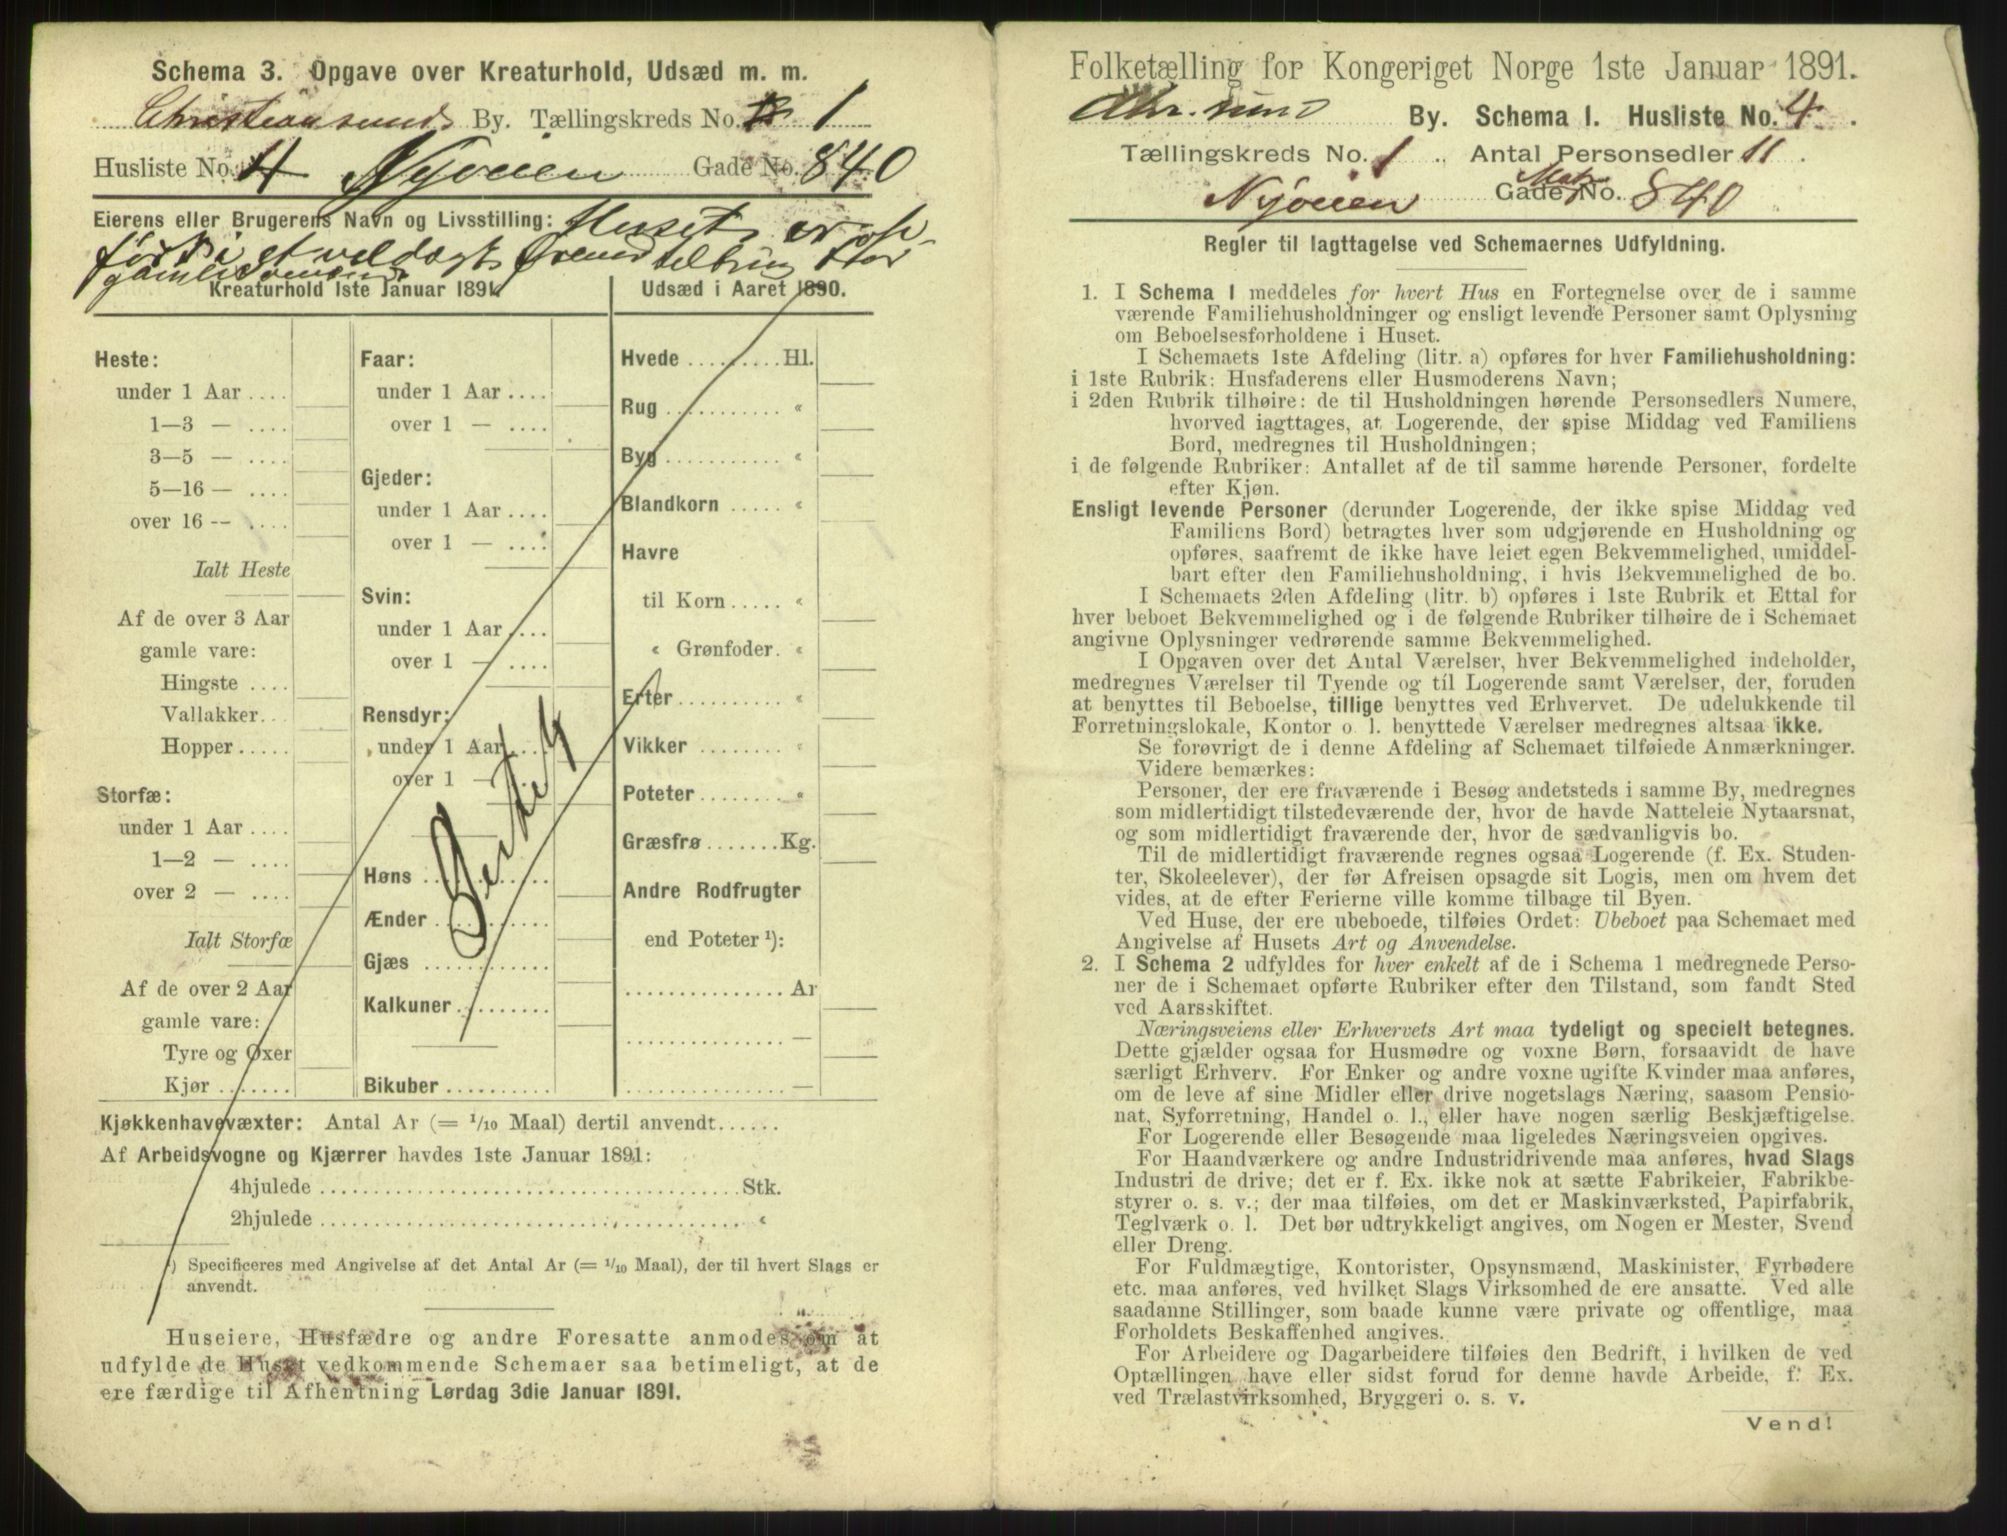 Schema 3. Opgave over Kreaturhold, Udsæd m. m.
Christiansunds By. Tællingskreds No. 1
Husliste No. 4 Nyveien Gade No. 840
Eierens eller Brugerens Navn og Livsstilling: Huset er op-
ført i et veldædigt Øiemed
gamle
Kreaturhold 1ste Januar 1891.
Heste:
under 1 Aar ....
1—3 — ....
3—5 — ....
5—16 — ....
over 16 -- ....
Ialt Heste
Af de over 3 Aar
gamle vare:
Hingste ....
Vallakker...
Hopper.....
Storfæ:
under 1 Aar ....
1—2 — ....
over 2 — ....
Ialt Storfæ
Af de over 2 Aar
gamle vare:
Tyre og Oxer
Kjør .......
Faar:
under 1 Aar ....
over 1 — ....
Gjeder:
under 1 Aar ....
over 1 — ....
Svin:
under 1 Aar ....
over 1 — ....
Rensdyr:
under 1 Aar ....
over 1 —
Høns ............
Ænder ..........
Gjæs ............
Kalkuner .........
Bikuber ..........
Udsæd i Aaret 1890.
Hvede ......... Hl.
Rug ........... «
Byg ........... «
Blandkorn ..... «
Havre
til Korn ..... «
« Grønfoder. «
Erter .......... «
Vikker ........ «
Poteter ........ «
Græsfrø ....... Kg.
Andre Rodfrugter
end Poteter ¹):
............... Ar
............... —
............... —
Kjøkkenhavevæxter: Antal Ar (= 1/10 Maal) dertil anvendt......
Af Arbeidsvogne og Kjærrer havdes 1ste Januar 1891:
4hjulede ........................................ Stk.
2hjulede ........................................ «
¹) Specificeres med Angivelse af det Antal Ar (= 1/10 Maal), der til hvert Slags er
anvendt.
Huseiere, Husfædre og andre Foresatte anmodes om at
udfylde de Huset vedkommende Schemaer saa betimeligt, at de
ere færdige til Afhentning Lørdag 3die Januar 1891.
Folketælling for Kongeriget Norge 1ste Januar 1891.
Chr.sund By. Schema I. Husliste No. 4.
Tællingskreds No. 1 . Antal Personsedler 11 .
Nyveien Gade Matr No. 840
Regler til Iagttagelse ved Schemaernes Udfyldning.
1. I Schema I meddeles for hvert Hus en Fortegnelse over de i samme
værende Familiehusholdninger og ensligt levende Personer samt Oplysning
om Beboelsesforholdene i Huset.
I Schemaets 1ste Afdeling (litr. a) opføres for hver Familiehusholdning:
i 1ste Rubrik: Husfaderens eller Husmoderens Navn;
i 2den Rubrik tilhøire: de til Husholdningen hørende Personsedlers Numere,
hvorved iagttages, at Logerende, der spise Middag ved Familiens
Bord, medregnes til Husholdningen;
i de følgende Rubriker: Antallet af de til samme hørende Personer, fordelte
efter Kjøn.
Ensligt levende Personer (derunder Logerende, der ikke spise Middag ved
Familiens Bord) betragtes hver som udgjørende en Husholdning og
opføres, saafremt de ikke have leiet egen Bekvemmelighed, umiddel-
bart efter den Familiehusholdning, i hvis Bekvemmelighed de bo.
I Schemaets 2den Afdeling (litr. b) opføres i 1ste Rubrik et Ettal for
hver beboet Bekvemmelighed og i de følgende Rubriker tilhøire de i Schemaet
angivne Oplysninger vedrørende samme Bekvemmelighed.
I Opgaven over det Antal Værelser, hver Bekvemmelighed indeholder,
medregnes Værelser til Tyende og til Logerende samt Værelser, der, foruden
at benyttes til Beboelse, tillige benyttes ved Erhvervet. De udelukkende til
Forretningslokale, Kontor o. l. benyttede Værelser medregnes altsaa ikke.
Se forøvrigt de i denne Afdeling af Schemaet tilføiede Anmærkninger.
Videre bemærkes:
Personer, der ere fraværende i Besøg andetsteds i samme By, medregnes
som midlertidigt tilstedeværende der, hvor de havde Natteleie Nytaarsnat,
og som midlertidigt fraværende der, hvor de sædvanligvis bo.
Til de midlertidigt fraværende regnes ogsaa Logerende (f. Ex. Studen-
ter, Skoleelever), der før Afreisen opsagde sit Logis, men om hvem det
vides, at de efter Ferierne ville komme tilbage til Byen.
Ved Huse, der ere ubeboede, tilføies Ordet: Ubeboet paa Schemaet med
Angivelse af Husets Art og Anvendelse.
2. I Schema 2 udfyldes for hver enkelt af de i Schema 1 medregnede Perso-
ner de i Schemaet opførte Rubriker efter den Tilstand, som fandt Sted
ved Aarsskiftet.
Næringsveiens eller Erhvervets Art maa tydeligt og specielt betegnes.
Dette gjælder ogsaa for Husmødre og voxne Børn, forsaavidt de have
særligt Erhverv. For Enker og andre voxne ugifte Kvinder maa anføres,
om de leve af sine Midler eller drive nogetslags Næring, saasom Pensio-
nat, Syforretning, Handel o. l., eller have nogen særlig Beskjæftigelse.
For Logerende eller Besøgende maa ligeledes Næringsveien opgives.
For Haandværkere og andre Industridrivende maa anføres, hvad Slags
Industri de drive; det er f. Ex. ikke nok at sætte Fabrikeier, Fabrikbe-
styrer o. s. v.; der maa tilføies, om det er Maskinværksted, Papirfabrik,
Teglværk o. l. Det bør udtrykkeligt angives, om Nogen er Mester, Svend
eller Dreng.
For Fuldmægtige, Kontorister, Opsynsmænd, Maskinister, Fyrbødere
etc. maa anføres, ved hvilket Slags Virksomhed de ere ansatte. Ved alle
saadanne Stillinger, som baade kunne være private og offentlige, maa
Forholdets Beskaffenhed angives.
For Arbeidere og Dagarbeidere tilføies den Bedrift, i hvilken de ved
Optællingen have eller sidst forud for denne havde Arbeide, f. Ex.
ved Trælastvirksomhed, Bryggeri o. s. v.
Vend!